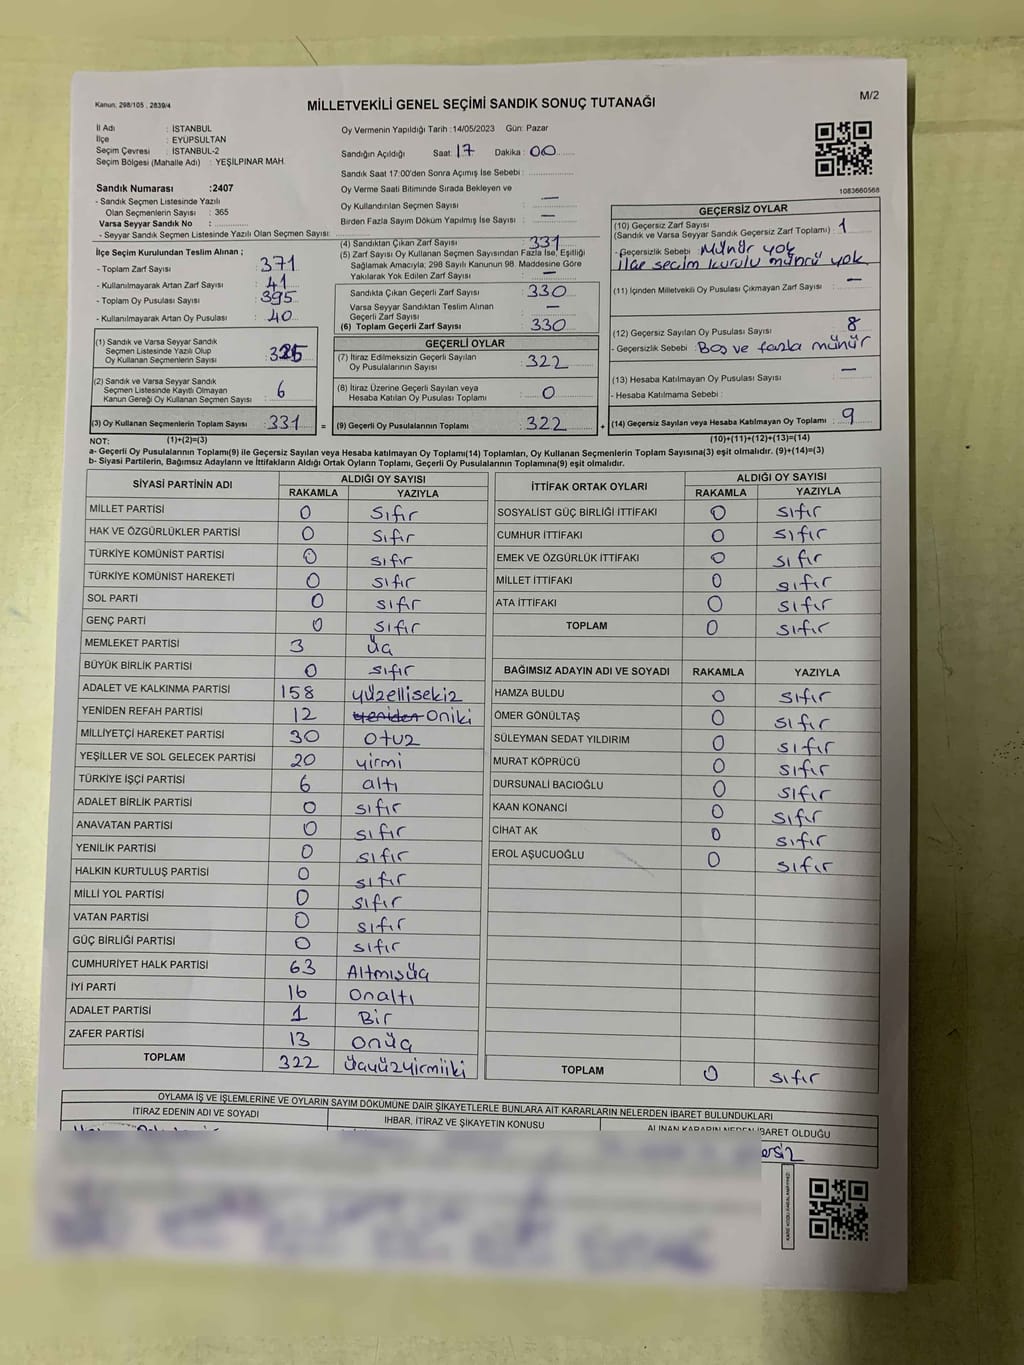 Kanun, 298/105 , 2839/4
MİLLETVEKİLİ GENEL SEÇİMİ SANDIK SONUÇ TUTANAĞI
M/2
İl Adı : İSTANBUL
İlçe : EYÜPSULTAN
Seçim Çevresi : İSTANBUL-2
Seçim Bölgesi (Mahalle Adı) : YEŞİLPINAR MAH.
Sandık Numarası :2407
- Sandık Seçmen Listesinde Yazılı
Olan Seçmenlerin Sayısı : 365
Varsa Seyyar Sandık No :
- Seyyar Sandık Seçmen Listesinde Yazılı Olan Seçmen Sayısı:
Oy Vermenin Yapıldığı Tarih :14/05/2023 Gün: Pazar
Sandığın Açıldığı Saat: 17 Dakika : 00
Sandık Saat 17:00'den Sonra Açımış İse Sebebi :
Oy Verme Saati Bitiminde Sırada Bekleyen ve
Oy Kullandırılan Seçmen Sayısı : —
Birden Fazla Sayım Döküm Yapılmış İse Sayısı : —
1083660568
İlçe Seçim Kurulundan Teslim Alınan ;
- Toplam Zarf Sayısı : 371
- Kullanılmayarak Artan Zarf Sayısı : 41
- Toplam Oy Pusulası Sayısı : 395
- Kullanılmayarak Artan Oy Pusulası : 40
(1) Sandık ve Varsa Seyyar Sandık
Seçmen Listesinde Yazılı Olup
Oy Kullanan Seçmenlerin Sayısı : 325
(2) Sandık ve Varsa Seyyar Sandık
Seçmen Listesinde Kayıtlı Olmayan
Kanun Gereği Oy Kullanan Seçmen Sayısı : 6
(3) Oy Kullanan Seçmenlerin Toplam Sayısı : 331 =
(4) Sandıktan Çıkan Zarf Sayısı : 331
(5) Zarf Sayısı Oy Kullanan Seçmen Sayısından Fazla İse, Eşitliği
Sağlamak Amacıyla; 298 Sayılı Kanunun 98. Maddesine Göre
Yakılarak Yok Edilen Zarf Sayısı : —
Sandıkta Çıkan Geçerli Zarf Sayısı : 330
Varsa Seyyar Sandıktan Teslim Alınan
Geçerli Zarf Sayısı : —
(6) Toplam Geçerli Zarf Sayısı : 330
GEÇERLİ OYLAR
(7) İtiraz Edilmeksizin Geçerli Sayılan
Oy Pusulalarının Sayısı : 322
(8) İtiraz Üzerine Geçerli Sayılan veya
Hesaba Katılan Oy Pusulası Toplamı : 0
(9) Geçerli Oy Pusulalarının Toplamı : 322 +
GEÇERSİZ OYLAR
(10) Geçersiz Zarf Sayısı
(Sandık ve Varsa Seyyar Sandık Geçersiz Zarf Toplamı) : 1
- Geçersizlik Sebebi : Mühür yok
ilçe seçim kurulu mührü yok
(11) İçinden Milletvekili Oy Pusulası Çıkmayan Zarf Sayısı : —
(12) Geçersiz Sayılan Oy Pusulası Sayısı : 8
- Geçersizlik Sebebi : Boş ve fazla mühür
(13) Hesaba Katılmayan Oy Pusulası Sayısı : —
- Hesaba Katılmama Sebebi :
(14) Geçersiz Sayılan veya Hesaba Katılmayan Oy Toplamı : 9
NOT: (1)+(2)=(3) (10)+(11)+(12)+(13)=(14)
a- Geçerli Oy Pusulalarının Toplamı(9) ile Geçersiz Sayılan veya Hesaba katılmayan Oy Toplamı(14) Toplamları, Oy Kullanan Seçmenlerin Toplam Sayısına(3) eşit olmalıdır. (9)+(14)=(3)
b- Siyasi Partilerin, Bağımsız Adayların ve İttifakların Aldığı Ortak Oyların Toplamı, Geçerli Oy Pusulalarının Toplamına(9) eşit olmalıdır.
SİYASİ PARTİNİN ADI ALDIĞI OY SAYISI
RAKAMLA YAZIYLA
MİLLET PARTİSİ 0 sıfır
HAK VE ÖZGÜRLÜKLER PARTİSİ 0 sıfır
TÜRKİYE KOMÜNİST PARTİSİ 0 sıfır
TÜRKİYE KOMÜNİST HAREKETİ 0 sıfır
SOL PARTİ 0 sıfır
GENÇ PARTİ 0 sıfır
MEMLEKET PARTİSİ 3 üç
BÜYÜK BİRLİK PARTİSİ 0 sıfır
ADALET VE KALKINMA PARTİSİ 158 yüzellisekiz
YENİDEN REFAH PARTİSİ 12 yeniden Oniki
MİLLİYETÇİ HAREKET PARTİSİ 30 otuz
YEŞİLLER VE SOL GELECEK PARTİSİ 20 yirmi
TÜRKİYE İŞÇİ PARTİSİ 6 altı
ADALET BİRLİK PARTİSİ 0 sıfır
ANAVATAN PARTİSİ 0 sıfır
YENİLİK PARTİSİ 0 sıfır
HALKIN KURTULUŞ PARTİSİ 0 sıfır
MİLLİ YOL PARTİSİ 0 sıfır
VATAN PARTİSİ 0 sıfır
GÜÇ BİRLİĞİ PARTİSİ 0 sıfır
CUMHURİYET HALK PARTİSİ 63 Altmışüç
İYİ PARTİ 16 onaltı
ADALET PARTİSİ 1 Bir
ZAFER PARTİSİ 13 onüç
TOPLAM 322 üçyüzyirmiiki
İTTİFAK ORTAK OYLARI ALDIĞI OY SAYISI
RAKAMLA YAZIYLA
SOSYALİST GÜÇ BİRLİĞİ İTTİFAKI 0 sıfır
CUMHUR İTTİFAKI 0 sıfır
EMEK VE ÖZGÜRLÜK İTTİFAKI 0 sıfır
MİLLET İTTİFAKI 0 sıfır
ATA İTTİFAKI 0 sıfır
TOPLAM 0 sıfır
BAĞIMSIZ ADAYIN ADI VE SOYADI RAKAMLA YAZIYLA
HAMZA BULDU 0 sıfır
ÖMER GÖNÜLTAŞ 0 sıfır
SÜLEYMAN SEDAT YILDIRIM 0 sıfır
MURAT KÖPRÜCÜ 0 sıfır
DURSUNALİ BACIOĞLU 0 sıfır
KAAN KONANCİ 0 sıfır
CİHAT AK 0 sıfır
EROL AŞUCUOĞLU 0 sıfır
TOPLAM 0 sıfır
OYLAMA İŞ VE İŞLEMLERİNE VE OYLARIN SAYIM DÖKÜMÜNE DAİR ŞİKAYETLERLE BUNLARA AİT KARARLARIN NELERDEN İBARET BULUNDUKLARI
İTİRAZ EDENİN ADI VE SOYADI IHBAR, İTİRAZ VE ŞİKAYETİN KONUSU ALINAN KARARIN NEDEN İBARET OLDUĞU